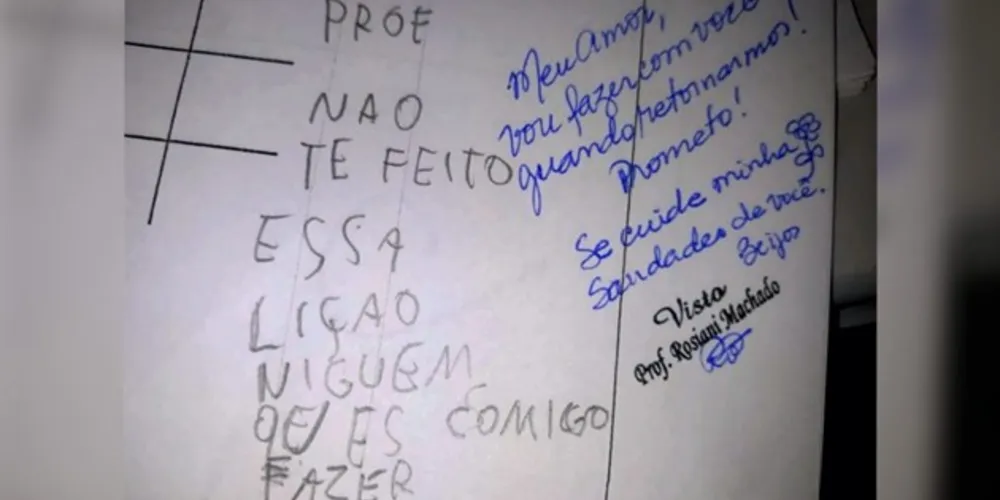 PROF
NAO
TE FEITO
ESSA
LIÇAO
NIGUEM
COMIGO
FAZER
Meu Amor,
vou fazer com você
quando retornarmos!
Prometo!
Se cuide minha
Saudades de você.
Beijos
Visto
Prof. Rosiani Machado